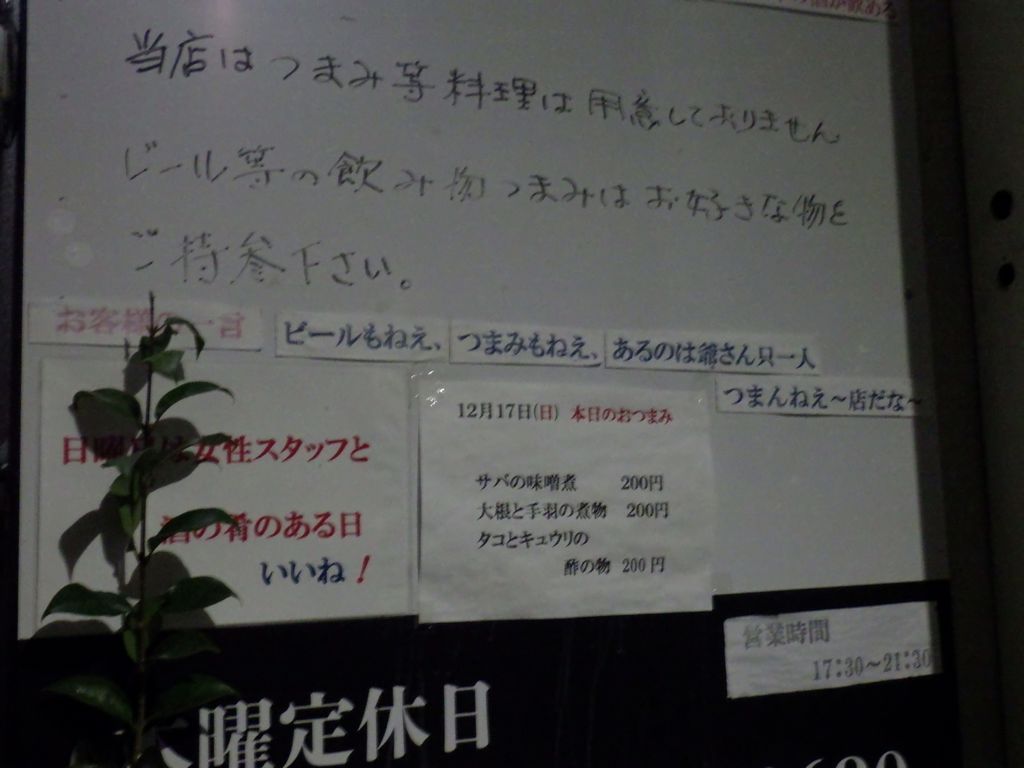 当店はつまみ等料理は用意しておりません
ビール等の飲み物つまみはお好きな物を
ご持参下さい。
お客様の一言
ビールもねえ、
つまみもねえ、
あるのは爺さん只一人
つまんねえ～店だな～
日曜日は女性スタッフと
酒の肴のある日
いいね！
12月17日(日) 本日のおつまみ
サバの味噌煮 200円
大根と手羽の煮物 200円
タコとキュウリの
酢の物 200円
営業時間
17:30～21:30
曜定休日